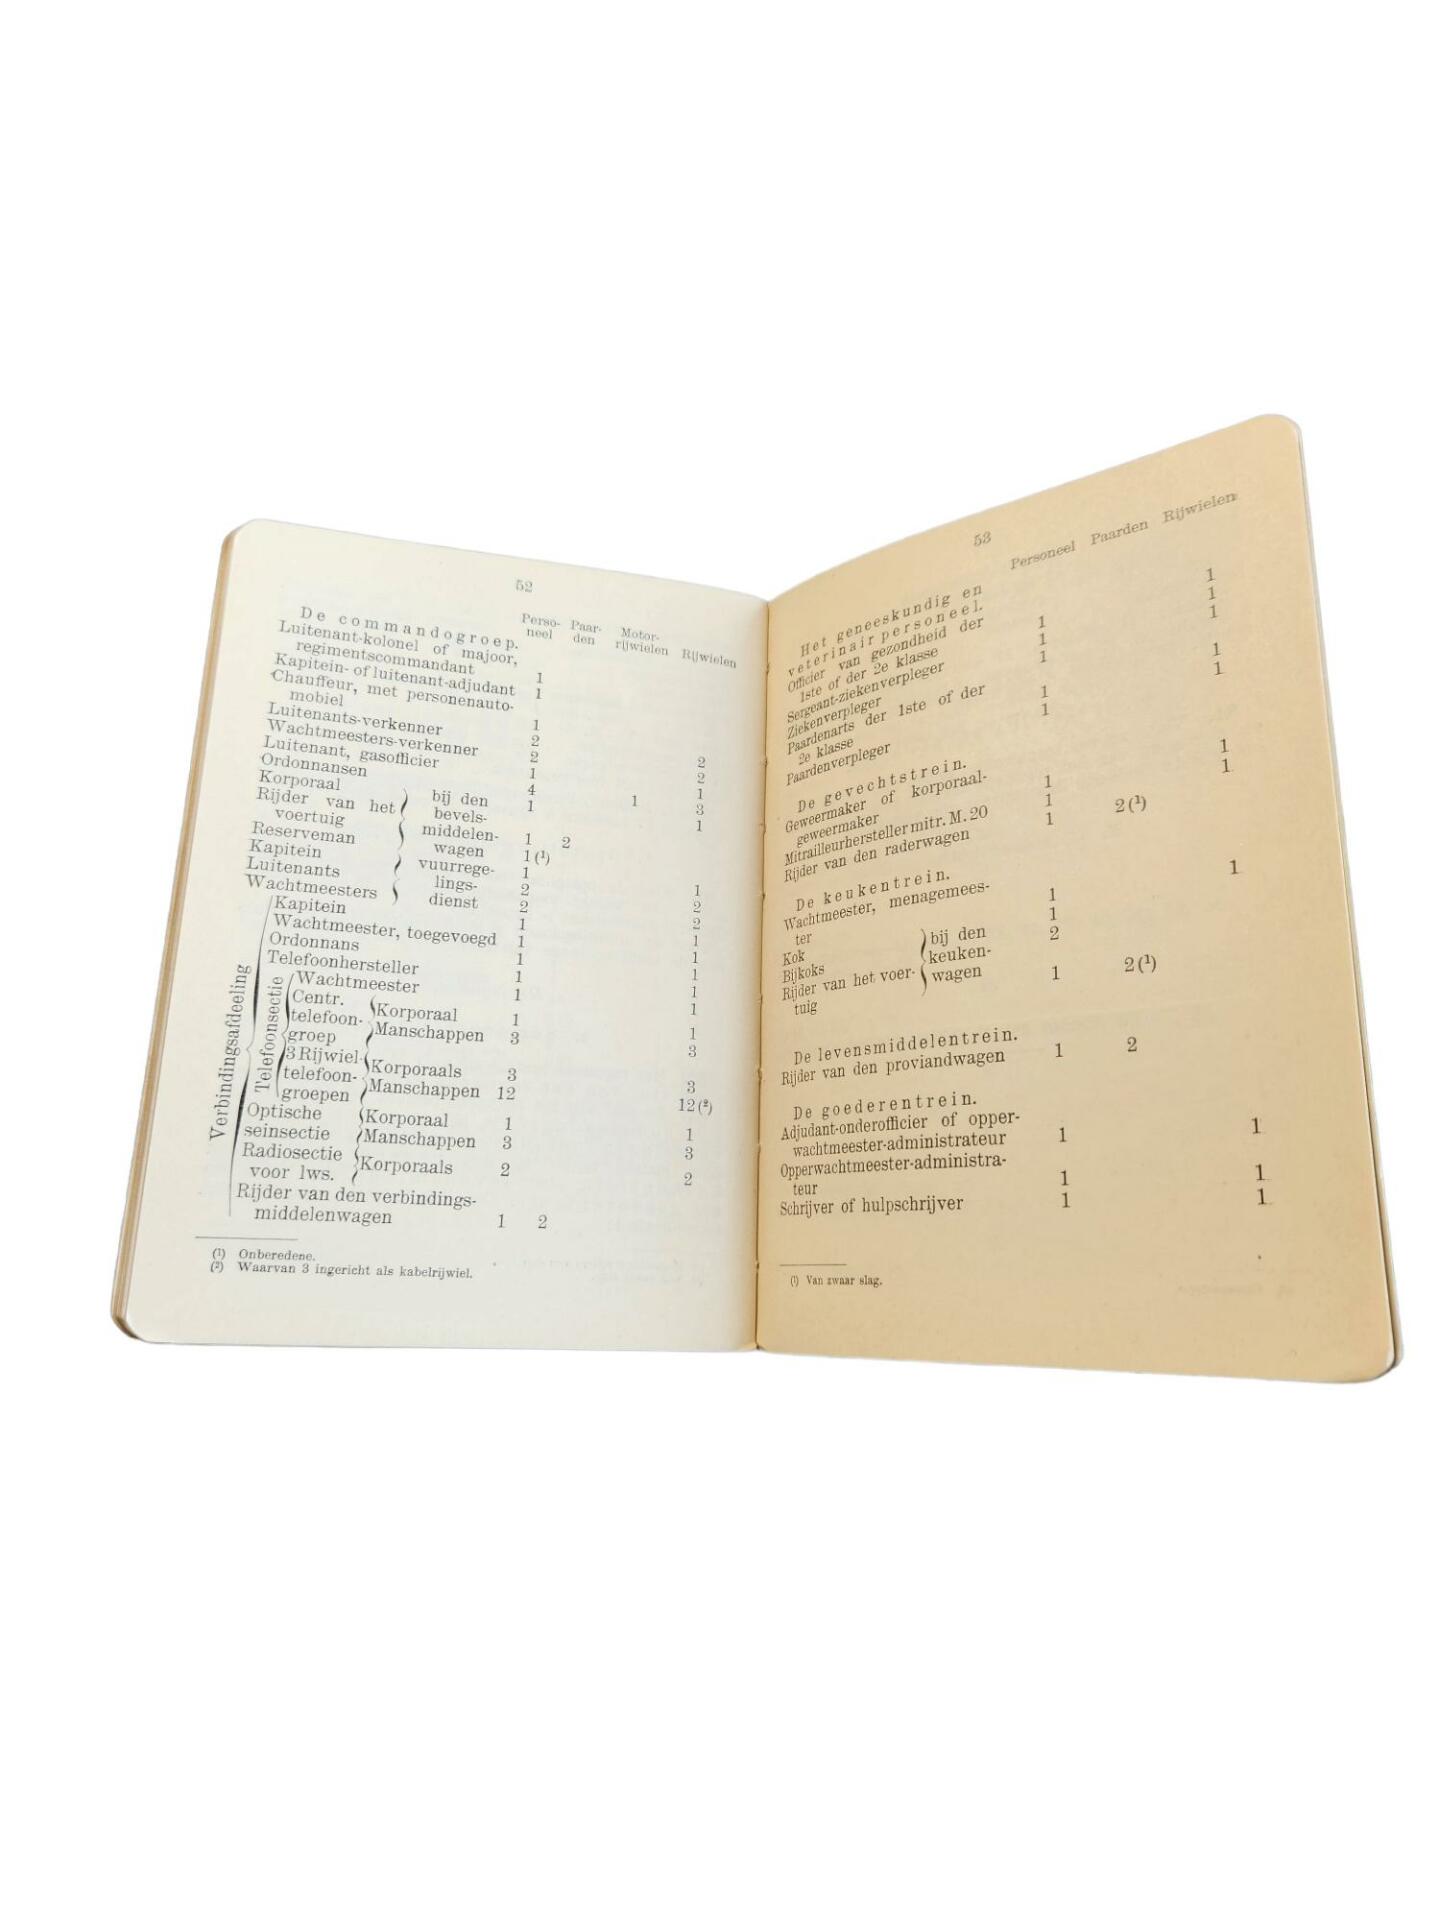 52
Perso- Paar- Motor-
neel den rijwielen Rijwielen
De commandogroep.
Luitenant-kolonel of majoor,
regimentscommandant 1
Kapitein- of luitenant-adjudant 1
Chauffeur, met personenauto-
mobiel 1
Luitenants-verkenner 2 2
Wachtmeesters-verkenner 2 2
Luitenant, gasofficier 1 1
Ordonnansen 4 1 3
Korporaal 1 1
Rijder van het
voertuig 1 2
Reserveman 1 (¹)
bij den
bevels-
middelen-
wagen
Kapitein 1 1
Luitenants 2 2
Wachtmeesters 2 2
vuurrege-
lings-
dienst
Verbindingsafdeeling
Kapitein 1 1
Wachtmeester, toegevoegd 1 1
Ordonnans 1 1
Telefoonhersteller 1 1
Telefoonsectie
Wachtmeester 1 1
Centr.
telefoon-
groep
Korporaal 1 1
Manschappen 3 3
3 Rijwiel-
telefoon-
groepen
Korporaals 3 3
Manschappen 12 12 (²)
Optische
seinsectie
Korporaal 1 1
Manschappen 3 3
Radiosectie
voor lws.
Korporaals 2 2
Rijder van den verbindings-
middelenwagen 1 2
(¹) Onberedene.
(²) Waarvan 3 ingericht als kabelrijwiel.
53
Personeel Paarden Rijwielen
Het geneeskundig en
veterinair personeel.
Officier van gezondheid der
1ste of der 2e klasse 1 1
Sergeant-ziekenverpleger 1 1
Ziekenverpleger 1 1
Paardenarts der 1ste of der
2e klasse 1 1
Paardenverpleger 1 1
De gevechtstrein.
Geweermaker of korporaal-
geweermaker 1 1
Mitrailleurhersteller mitr. M. 20 1 1
Rijder van den raderwagen 1 2 (¹)
De keukentrein.
Wachtmeester, menagemees-
ter 1 1
Kok 1
Bijkoks 2
Rijder van het voer-
tuig 1 2 (¹)
bij den
keuken-
wagen
De levensmiddelentrein.
Rijder van den proviandwagen 1 2
De goederentrein.
Adjudant-onderofficier of opper-
wachtmeester-administrateur 1 1
Opperwachtmeester-administra-
teur 1 1
Schrijver of hulpschrijver 1 1
(¹) Van zwaar slag.